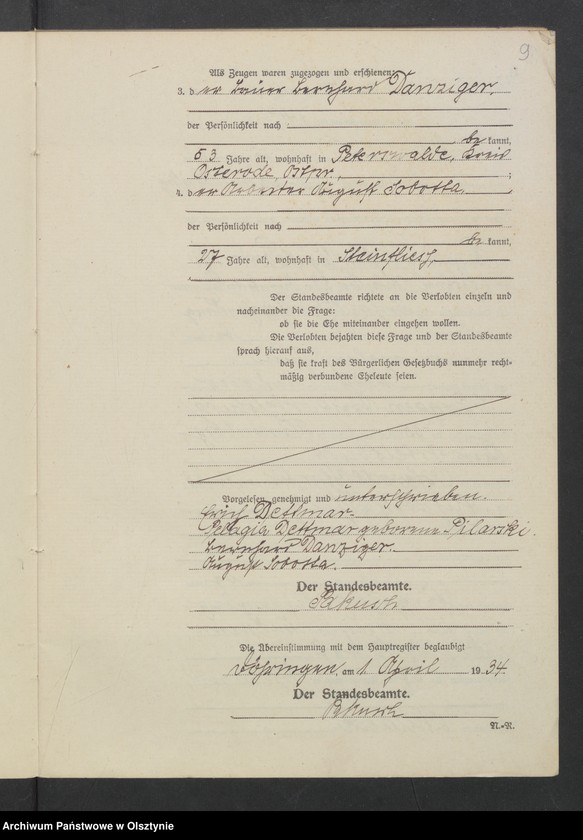 9
Als Zeugen waren zugezogen und erschienen:
3. der Bauer Bernhard Danziger.
der Persönlichkeit nach
be kannt,
53 Jahre alt, wohnhaft in Peterswalde, Kreis
Osterode, Ostpr. ;
4. der Arbeiter August Sobotta.
der Persönlichkeit nach
be kannt,
27 Jahre alt, wohnhaft in Steinfliess.
Der Standesbeamte richtete an die Verlobten einzeln und
nacheinander die Frage:
ob sie die Ehe miteinander eingehen wollen.
Die Verlobten bejahten diese Frage und der Standesbeamte
sprach hierauf aus,
daß sie kraft des Bürgerlichen Gesetzbuchs nunmehr recht-
mäßig verbundene Eheleute seien.
Vorgelesen, genehmigt und unterschrieben.
Erich Dettmar.
Pelagia Dettmar geborene Pilarski.
Bernhard Danziger.
August Sobotta.
Der Standesbeamte.
Die Übereinstimmung mit dem Hauptregister beglaubigt
Döhringen, am 1. April 1934.
Der Standesbeamte.
N.-R.
Archiwum Państwowe w Olsztynie